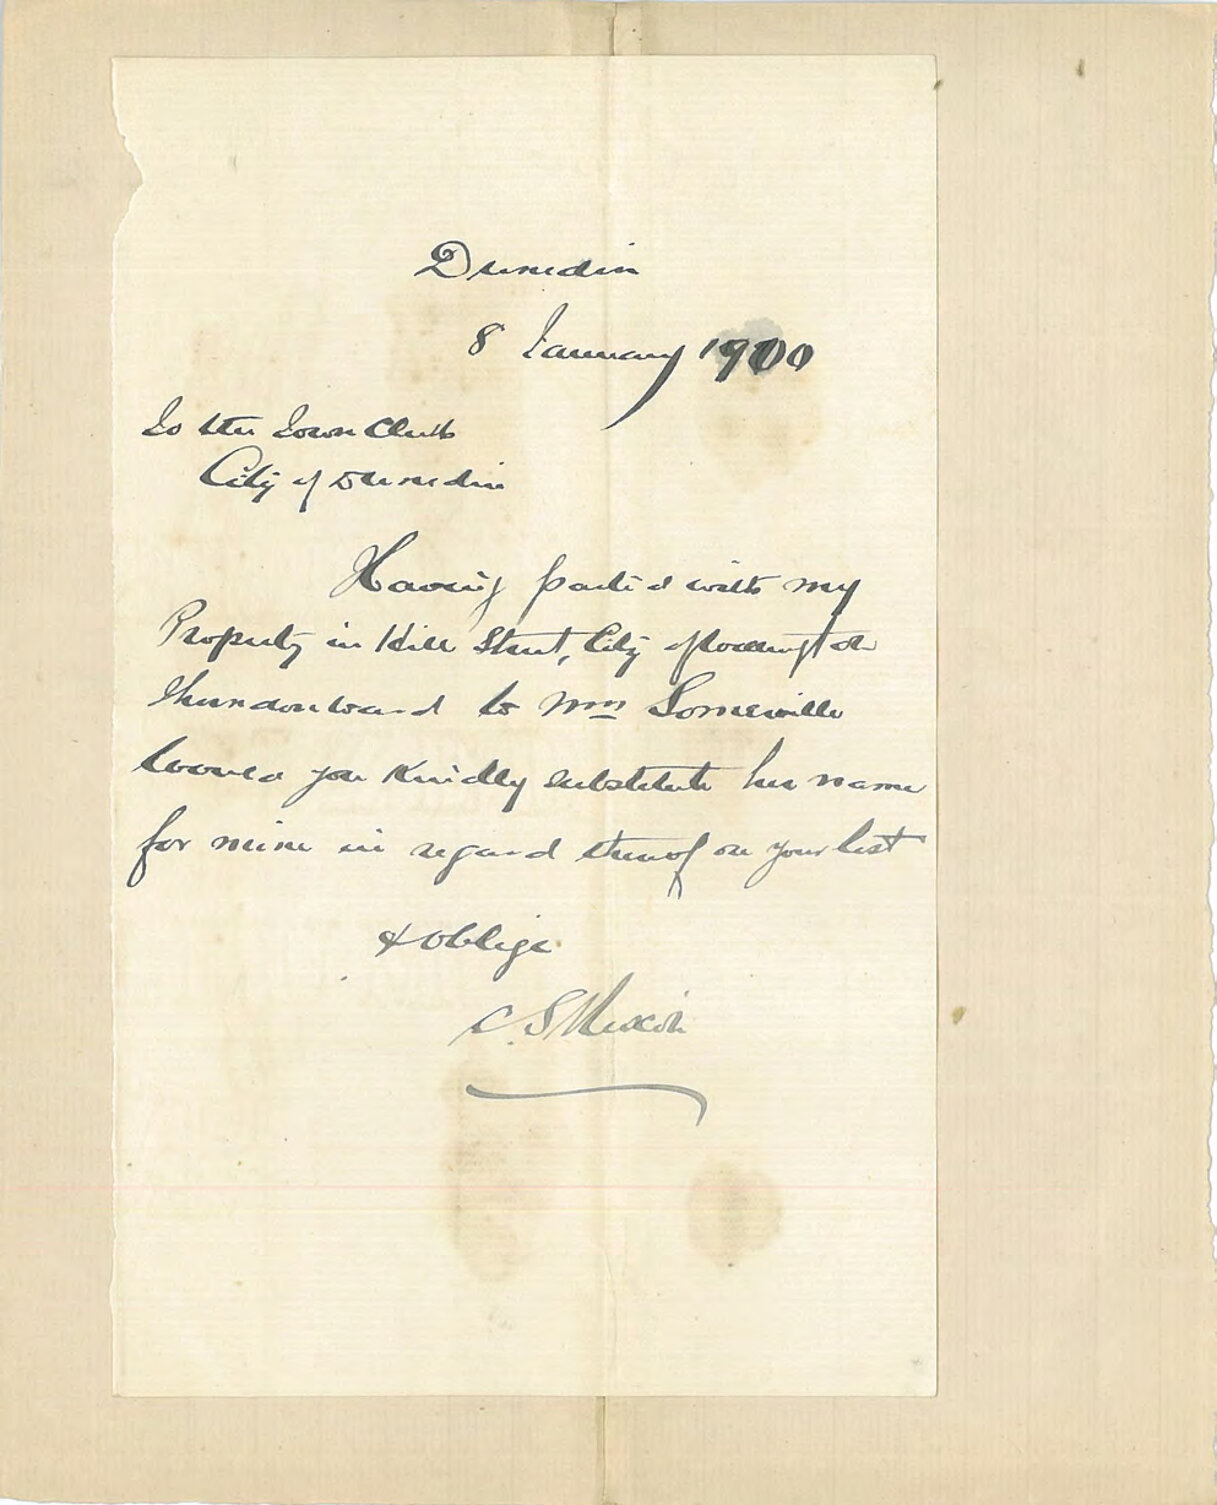 Dunedin
8 January 1900
To the Town Clerk
City of Dunedin
Having parted with my
Property in Hill Street, City of Wellington
Thorndon Ward to Wm Somerville
would you Kindly substitute his name
for mine in regard thereof on your list
& oblige
C. S.